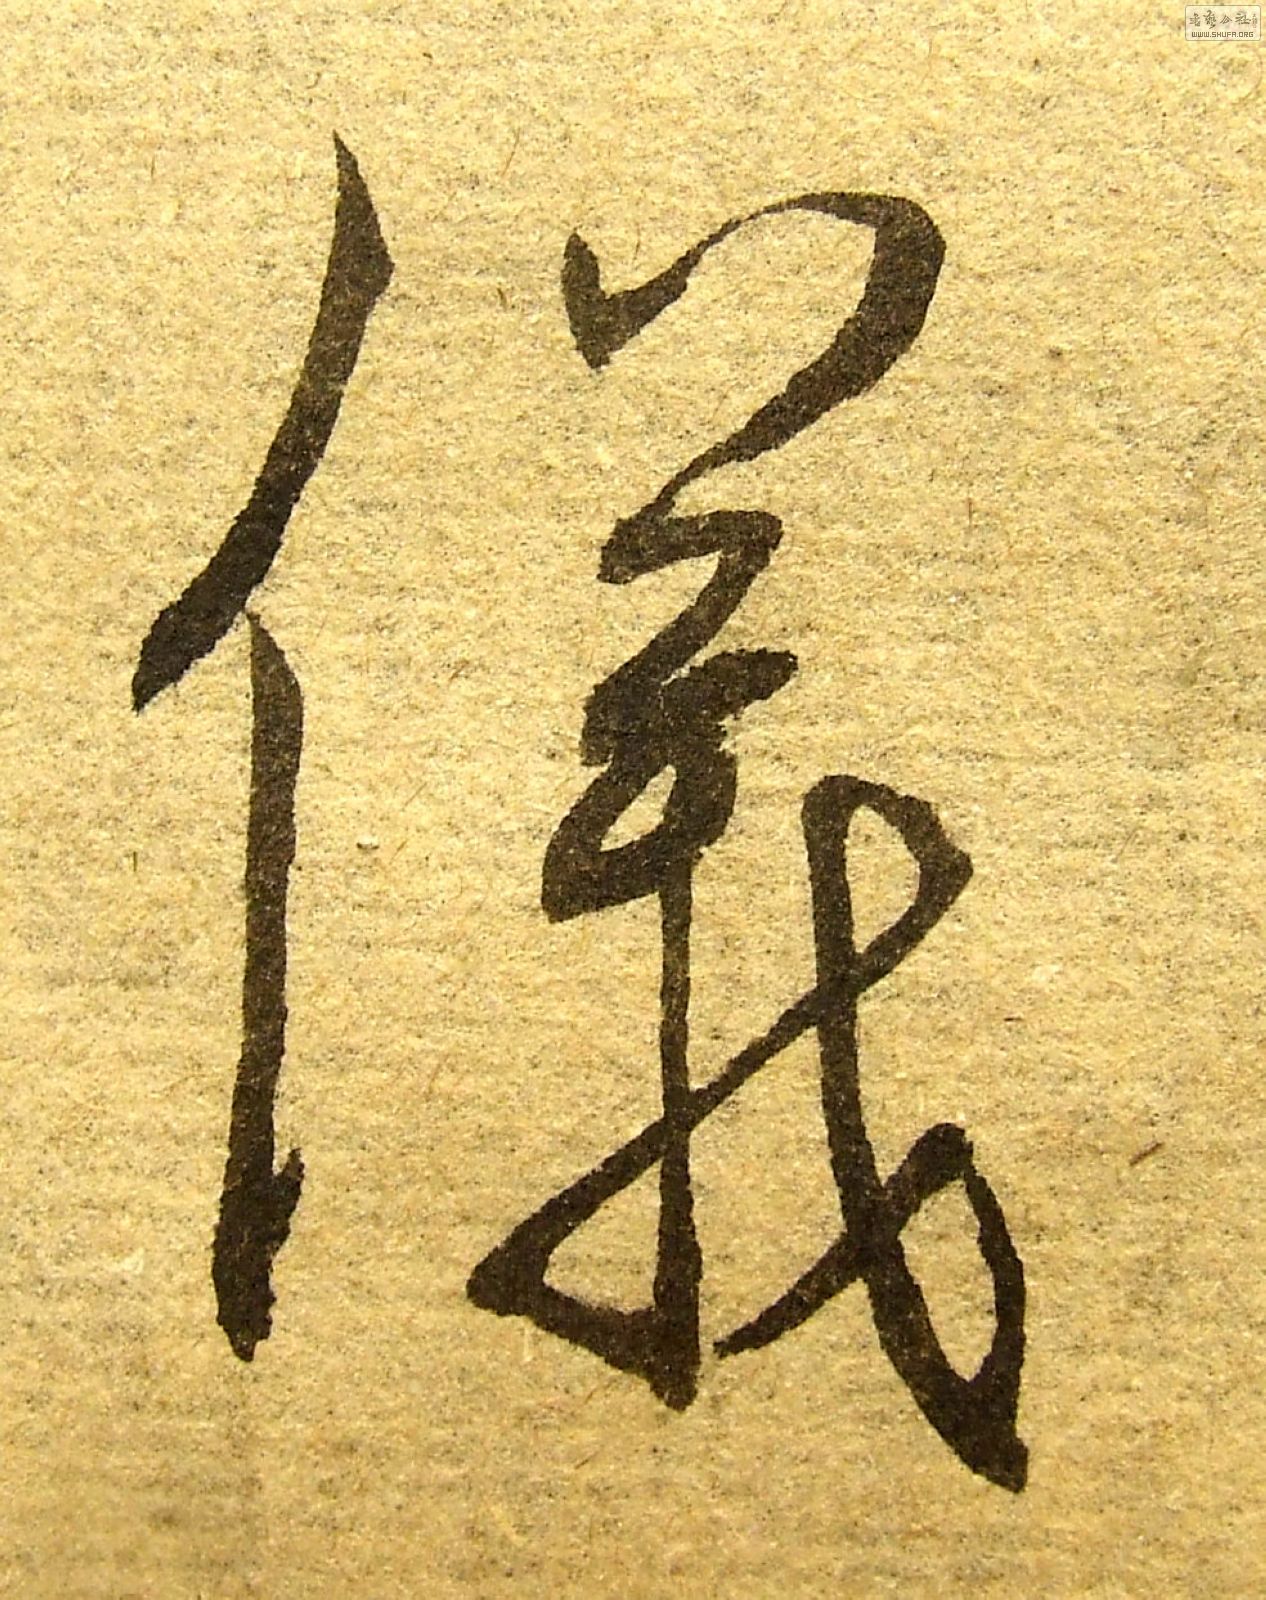 儀
书艺公社
WWW.SHUFA.ORG